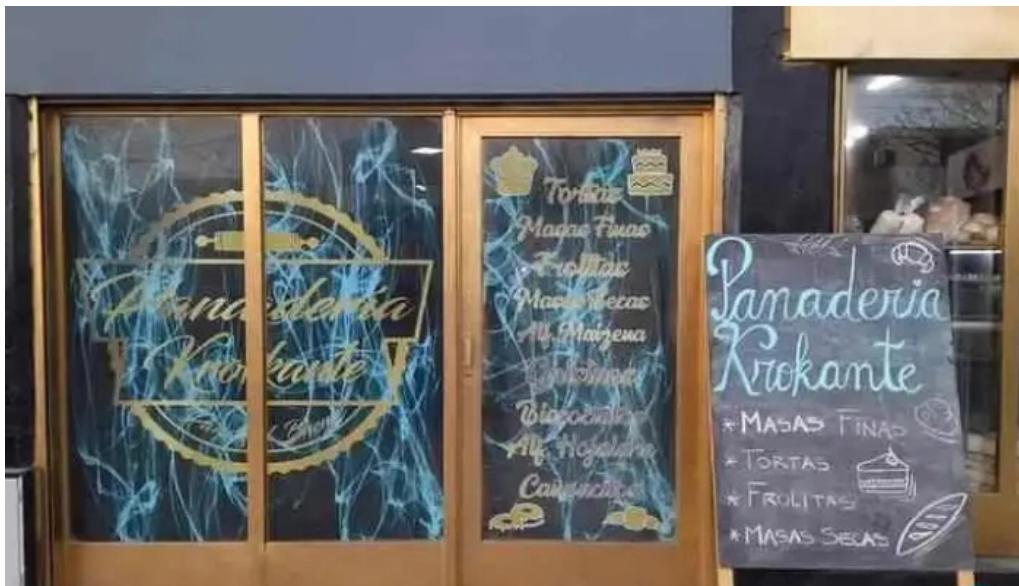 Panadería
Krokante
Tortas
Masas Finas
Frolitas
Masas Secas
Alf. Maizena
Bizcochitos
Alf. Hojaldre
Cañoncitos
Panaderia
Krokante
* MASAS FINAS
* TORTAS
* FROLITAS
* MASAS SECAS